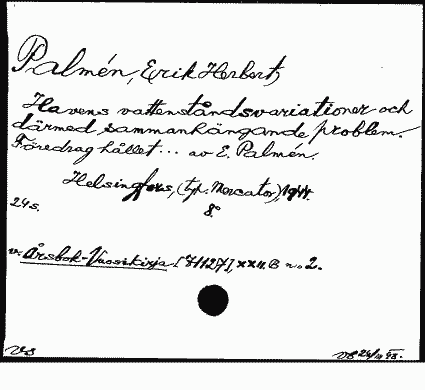 Palmén, Erik Herbert,
Havens vattenståndsvariationer och
därmed sammanhängande problem.
Föredrag hållet... av E. Palmén.
Helsingfors, (typ. Mercator), 1944.
8°
24 s.
v. Årsbok-Vuosikirja [71127], XXII. B n:o 2.